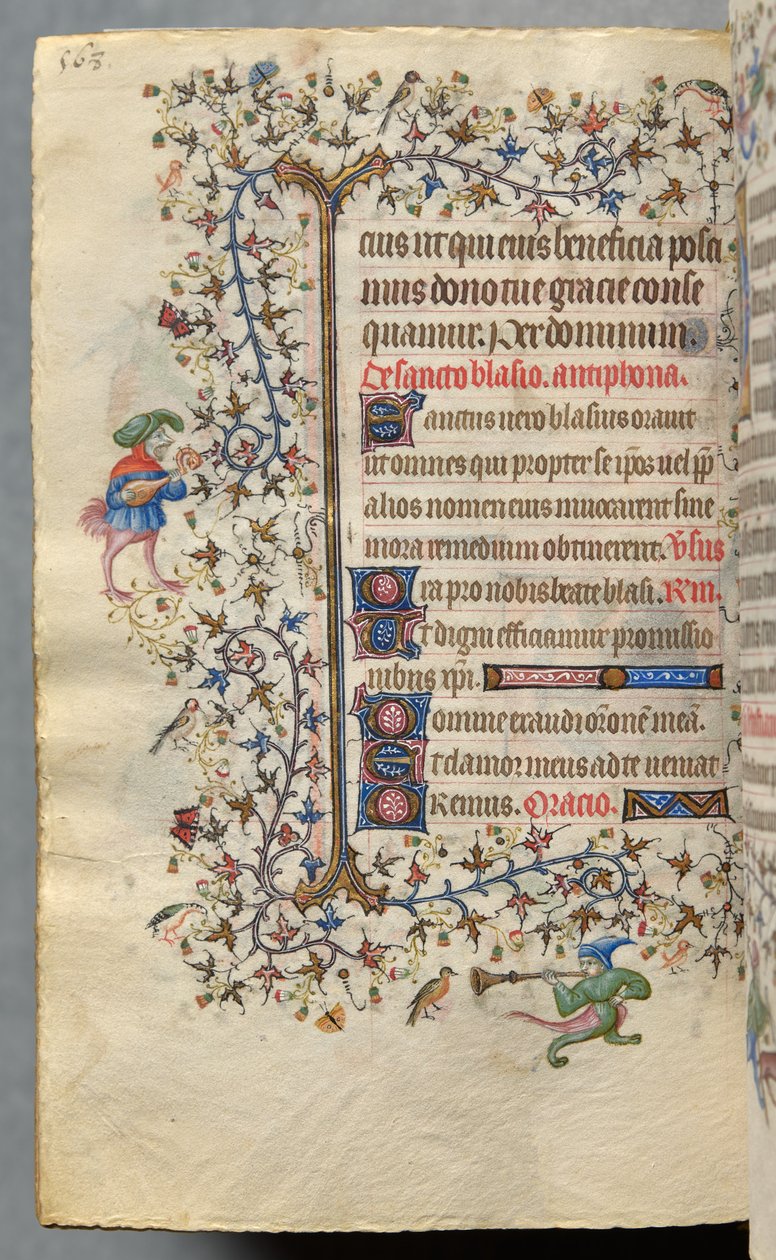 568.
cius ut qui eius beneficia posci
mus dono tue gracie conse
quamur. Per dominum.
De sancto blasio. antiphona.
Sanctus vero blasius orauit
ut omnes qui propter se ip̅os uel pp̅
alios nomen eius inuocarent sine
mora remedium obtinerent. V̅sus
Ora pro nobis beate blasi. R̅m.
Ut digni efficiamur promissio
nibus xp̅i.
Domine exaudi or̅one̅ mea̅.
Et clamor meus ad te ueniat
Oremus. Oracio.